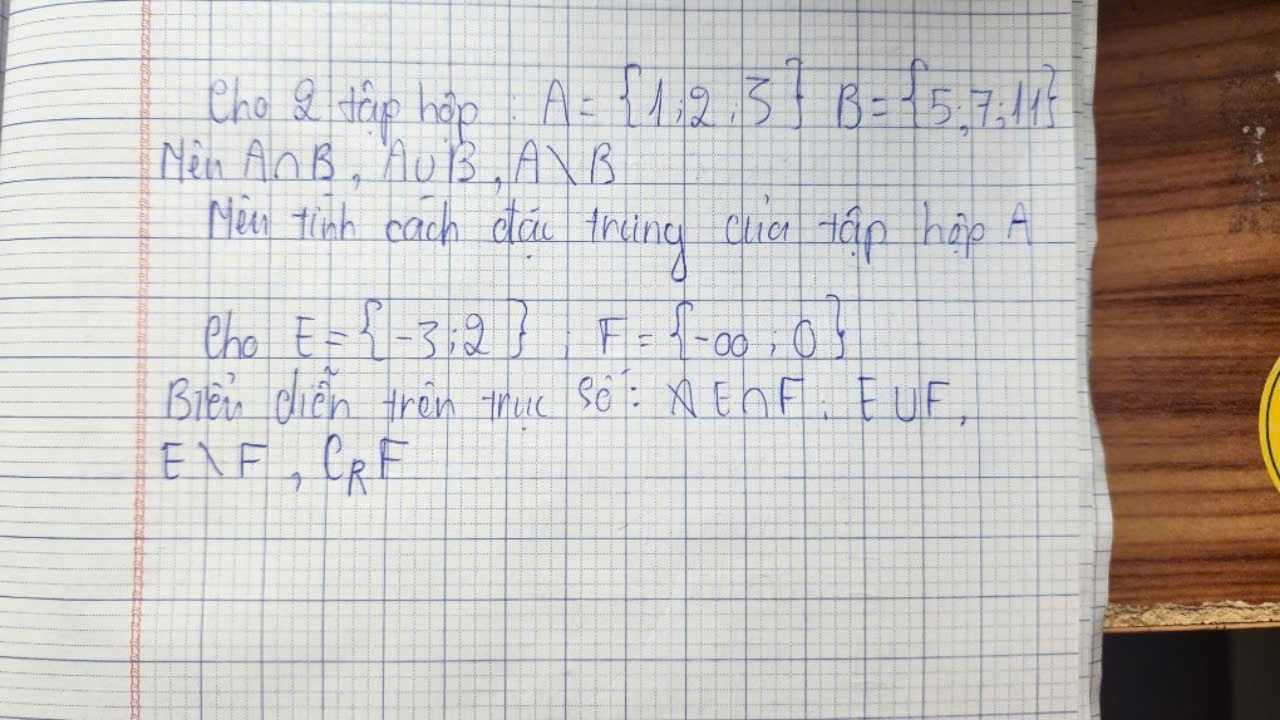 Cho 2 tập hợp : A = {1;2;3} B = {5;7;11}
Nên A∩B, A∪B, A\B
Nêu tính cách đặc trưng của tập hợp A
Cho E = {-3;2} ; F = {-∞;0}
Biểu diễn trên trục số: E∩F; E∪F,
E\F, CRF